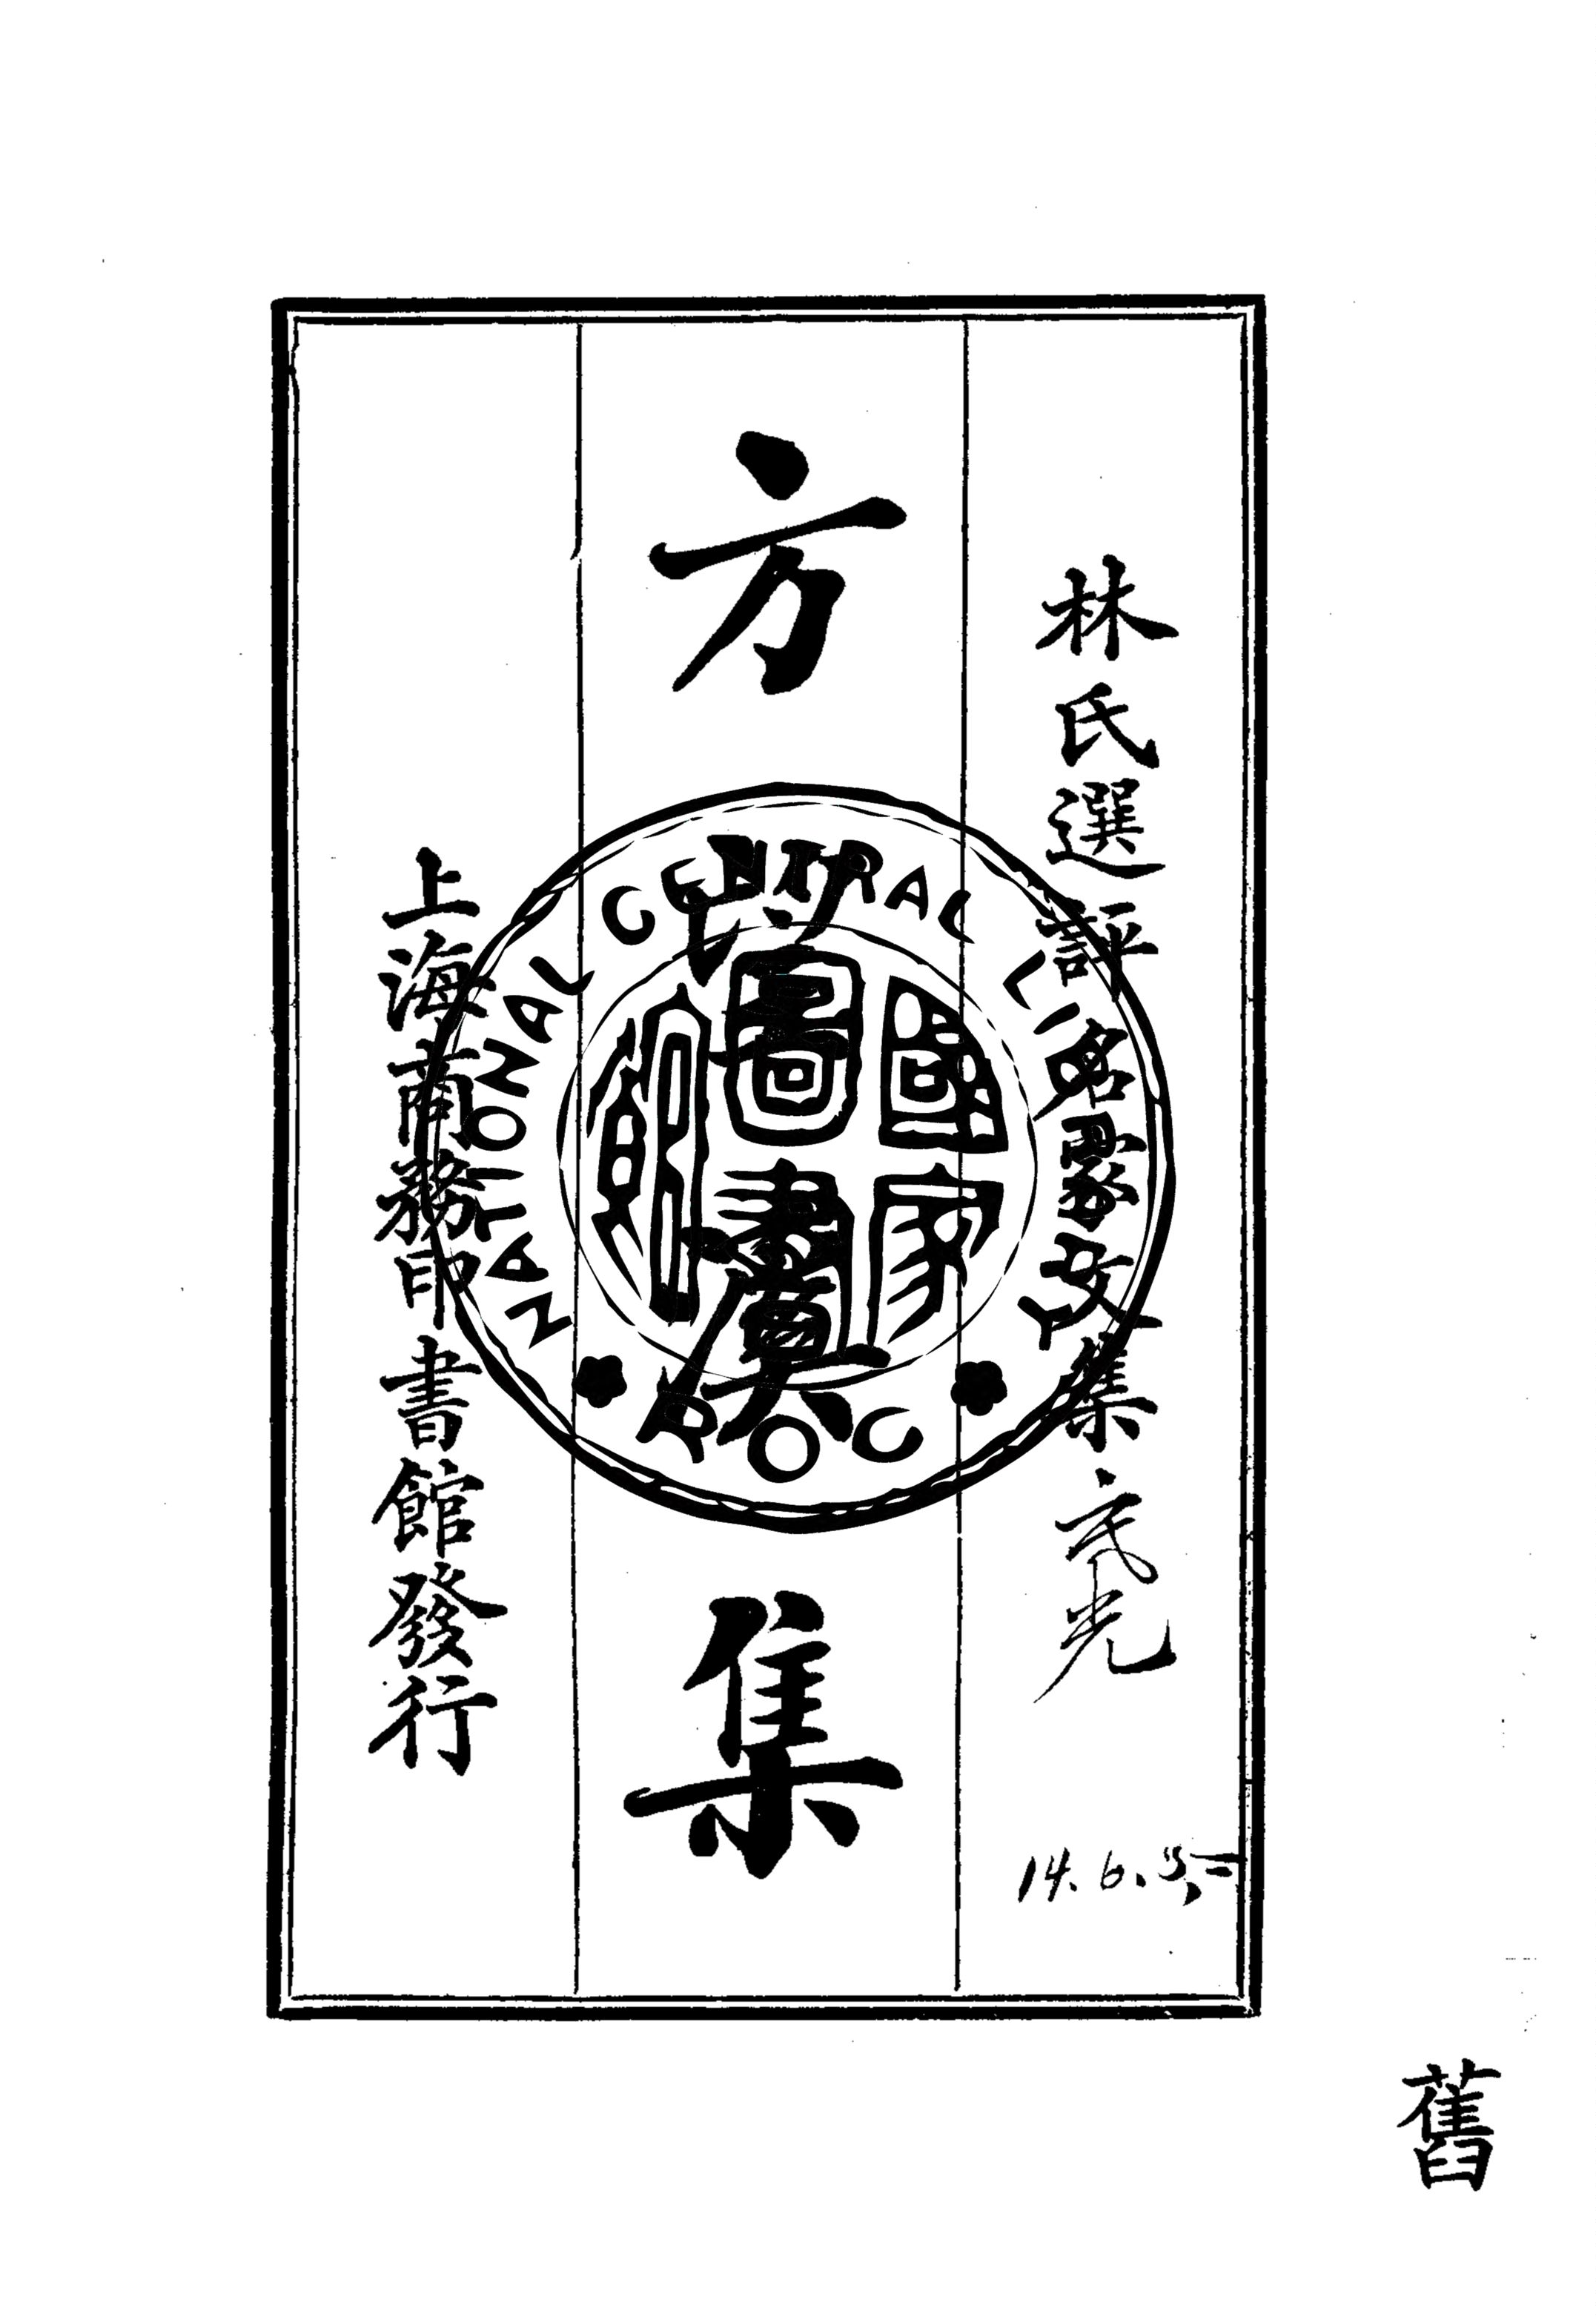 林氏選評名家文集
方望溪集
上海商務印書館發行
NATIONAL CENTRAL LIBRARY
國家圖書館
ROC
14.6.
舊